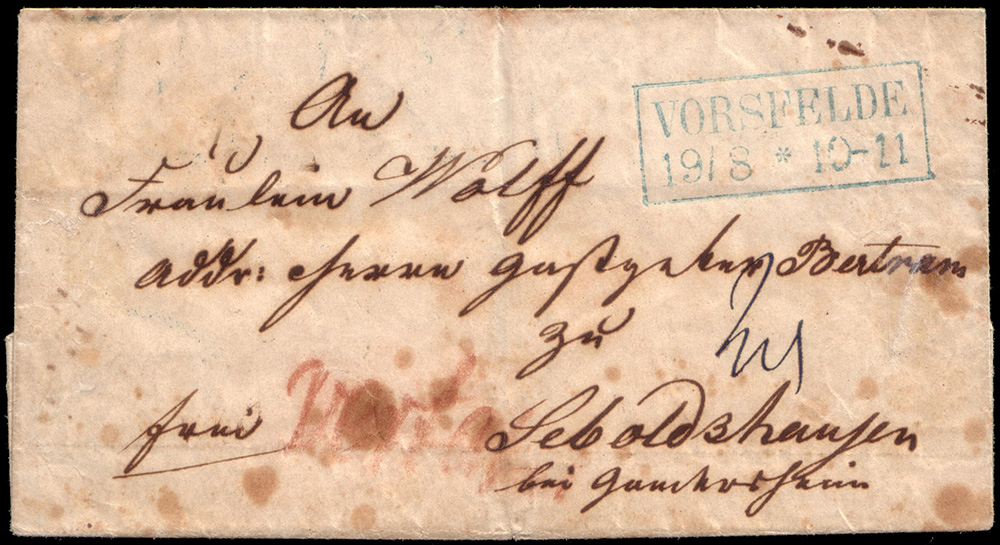 VORSFELDE
19/8 * 10-11
An
Fräulein Wolff
Addr: Herrn Gastgeber Bertram
zu
frei Seboldshausen
bei Gandersheim